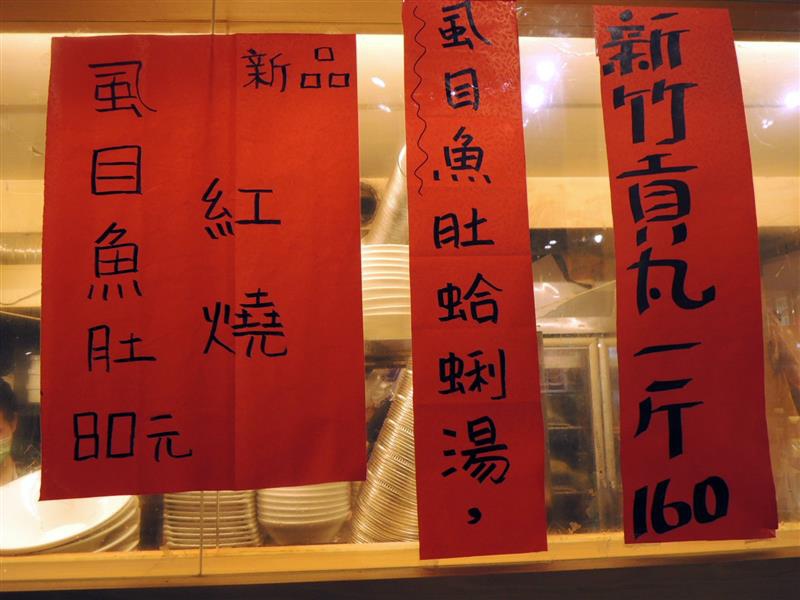 新品
紅燒
虱目魚肚80元
虱目魚肚蛤蜊湯，
新竹貢丸一斤160